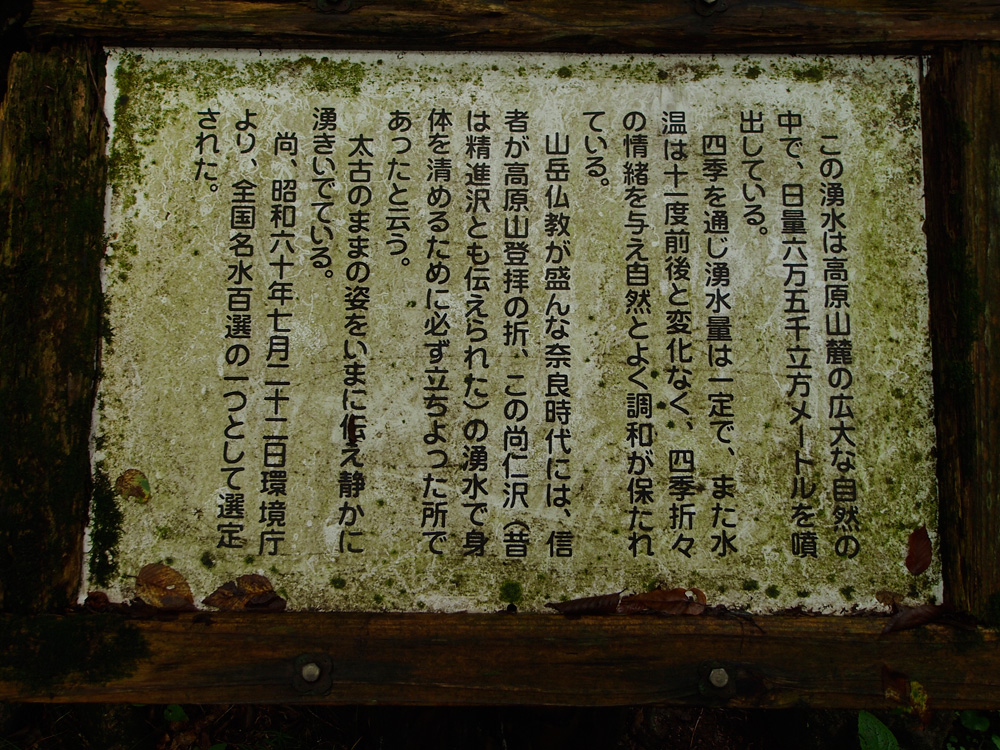 この湧水は高原山麓の広大な自然の
中で、日量六万五千立方メートルを噴
出している。
四季を通じ湧水量は一定で、また水
温は十一度前後と変化なく、四季折々
の情緒を与え自然とよく調和が保たれ
ている。
山岳仏教が盛んな奈良時代には、信
者が高原山登拝の折、この尚仁沢（昔
は精進沢とも伝えられた）の湧水で身
体を清めるために必ず立ちよった所で
あったと云う。
太古のままの姿をいまに伝え静かに
湧きいでている。
尚、昭和六十年七月二十二日環境庁
より、全国名水百選の一つとして選定
された。